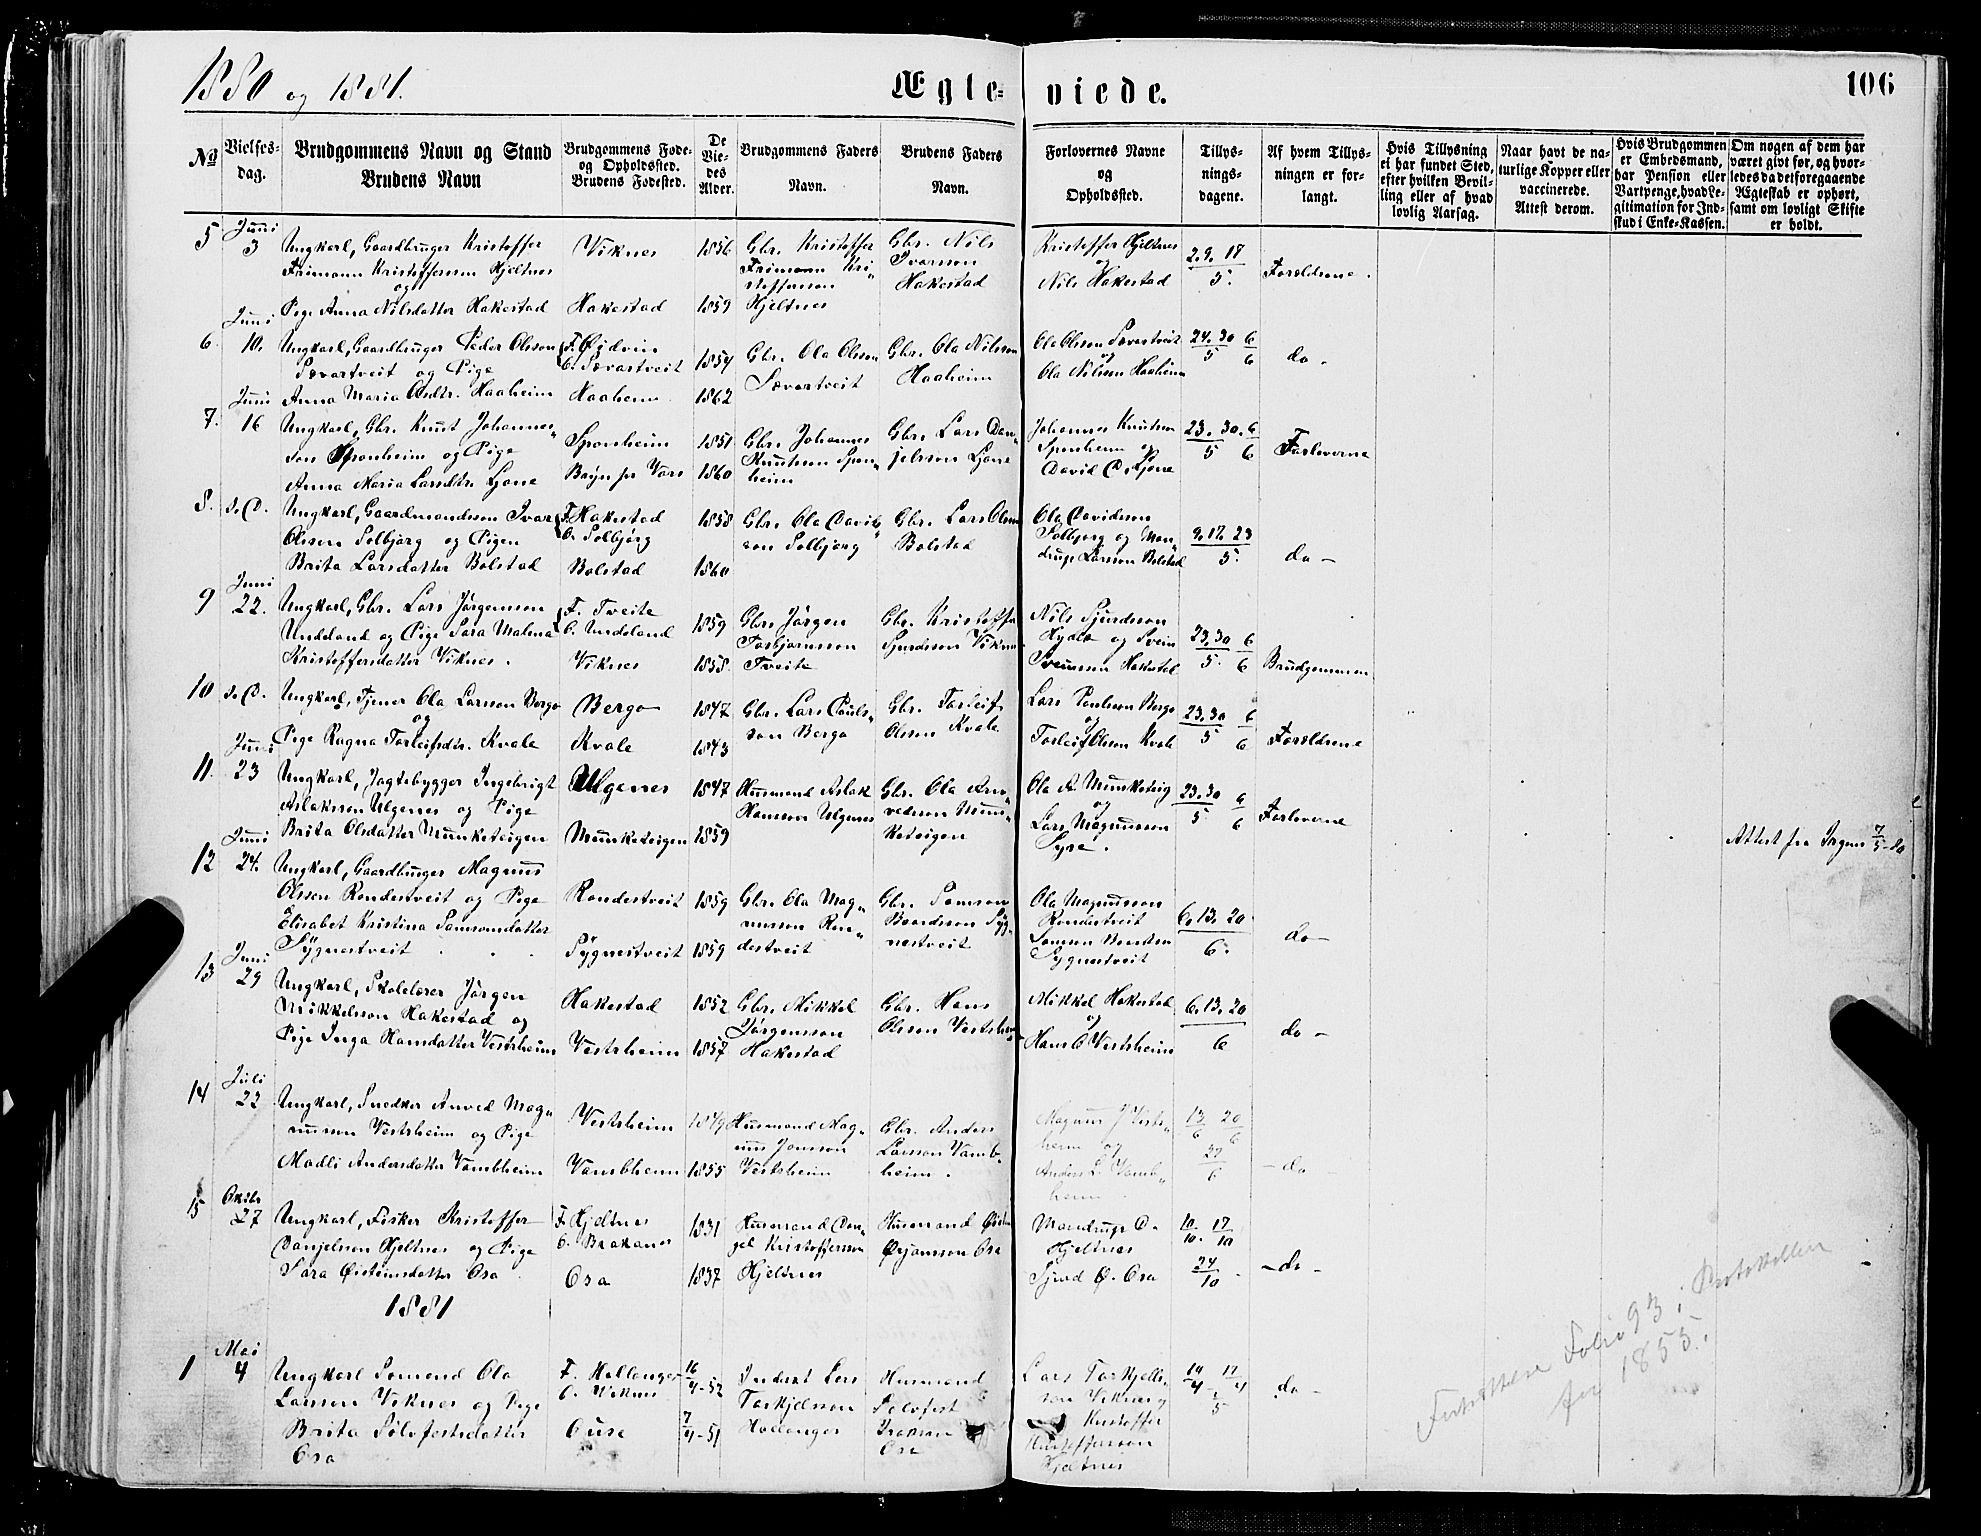 1880 og 1881.
Ægte-viede.
106
No
Vielses-
dag.
Brudgommens Navn og Stand
Brudens Navn
Brudgommens Føde-
og Opholdssted.
Brudens Fødested.
De
Vie-
des
Alder.
Brudgommens Faders
Navn.
Brudens Faders
Navn.
Forlovernes Navne
og
Opholdssted.
Tillys-
nings-
dagene.
Af hvem Tillys-
ningen er for-
langt.
Hvis Tillysning
ei har fundet Sted,
efter hvilken Bevil-
ling eller af hvad
lovlig Aarsag.
Naar havt de na-
turlige Kopper eller
vaccinerede.
Attest derom.
Hvis Brudgommen
er Embedsmand,
har Pension eller
Vartpenge, hvad Le-
gitimation for Ind-
skud i Enke-Kassen.
Om nogen af dem har
været givt før, og hvor-
ledes da det foregaaende
Ægteskab er ophørt,
samt om lovligt Skifte
er holdt.
5
Juni
3
Ungkarl, Gaardbruger Kristoffer
Frimann Kristoffersson Hjeltnes
og
Pige Anna Nilsdatter Hakestad
Viknes
Hakestad
1856
1859
Gbr. Kristoffer
Frimann Kri-
stoffersson
Hjeltnes
Gbr. Nils
Ivarsson
Hakestad
Kristoffer Hjeltnes
og
Nils Hakestad
2. 9. 17
5.
Forældrene.
6
Juni
10.
Ungkarl, Gaardbruger Peder Olsson
Sævartveit og Pige
Anna Maria Olsdtr. Haaheim
F. Øjdvin
O. Sævartveit
Haaheim
1854
1862
Gbr. Ola Olsson
Sævartveit
Gbr. Ola Nilsson
Haaheim
Ola Olsson Sævartveit
og
Ola Nilsson Haaheim
24. 30 6
5 6
do -
7.
Juni
16
Ungkarl, Gbr. Knut Johannes-
son Sponheim og Pige
Anna Maria Larsdtr. Ljone
Sponheim
Bøyn pr Vors
1851
1860
Gbr. Johannes
Knutsson Spon-
heim
Gbr. Lars Dan-
jelsson Ljone
Johannes Knutson
Sponheim og
David D. Ljone
23. 30. 6
5 6
Forloverne
8.
s. D.
Ungkarl, Gaardmandsson Ivar
Olsson Solbjørg og Pigen
Brita Larsdatter Bolstad
F. Hakestad
O. Solbjørg
Bolstad
1858
1860
Gbr. Ola David-
son Solbjørg
Gbr. Lars Olsson
Bolstad
Ola Davidsson
Solbjørg og Man-
drup Larsson Bolstad
9. 17. 23
5.
do -
9
Juni
22.
Ungkarl, Gbr. Lars Jørgensson
Undeland og Pige Sara Malena
Kristoffersdatter Viknes.
F. Tveite
O. Undeland
Viknes
1859
1858.
Gbr. Jørgen
Torbjørnsson
Tveite
Gbr. Kristoffer
Sjurdsson Viknes
Nils Sjurdsson
Hydle og Svein
Sveinsson Hakestad
23. 30 6
5. 6
Brudgommen
10
s. D.
Ungkarl, Tjener Ola Larsson Bergo
og
Pige Ragna Torleifsdtr. Kvale
Bergo
Kvale
1847
1843
Gbr. Lars Pauls-
son Bergo
Gbr. Torleif
Olsson Kvale
Lars Paulsson Bergo
og
Torleif Olsson Kvale
23. 30 6
5 6
Forældrene
11.
Juni
23
Ungkarl, Jagtebygger Ingebrigt
Aslaksson Ulgenes og Pige
Brita Olsdatter Munketeigen
Ulgenes
Munketeigen
1847
1859
Husmand Aslak
Hansson Ulgenes
Gbr. Ola Arn-
vedson Mun-
keteigen
Ola A. Munketeig
og
Lars Magnusson
Syse.
23. 30 6
5 6
Forloverne
Attest fra 7/5-80
12
Juni
24.
Ungkarl, Gaardbruger Magnus
Olsson Røndestveit og Pige
Elisabet Kristina Samsonsdatter
Sygnestveit
Røndestveit
Sygnestveit
1859
1859
Gbr. Ola Mag-
nusson Røn-
destveit
Gbr. Samson
Baardsson Syg-
nestveit
Ola Magnusson
Røndestveit
Samson Baardson
Sygnestveit
6. 13. 20
6.
do -
13
Juni
29
Ungkarl, Skolelærer Jørgen
Mikkelsson Hakestad og
Pige Inga Hansdatter Vestrheim
Hakestad
Vestrheim
1852
1857
Gbr. Mikkel
Jørgensson
Hakestad
Gbr. Hans
Olsson Vestrheim
Mikkel Hakestad
og
Hans O Vestrheim
6. 13. 20
6
do -
14
Juli
22
Ungkarl, Snedker Anved Mag-
nusson Vestrheim og Pige
Madli Andersdatter Vambheim
Vestrheim
Vambheim
1849
1855
Husmand Mag-
nus Jonsson
Vestrheim
Gbr. Anders
Larsson Vamb-
heim.
Magnus J Vestr-
heim og
Anders L. Vamb-
heim
13 20
6 6
27
6
- do
15
Oktbr
27
Ungkarl, Fisker Kristoffer
Danjelson Hjeltnes og Pige
Sara Øisteinsdatter Osa
F. Hjeltnes
O. Brakanes
Osa
1831
1837
Husmand Dan-
jel Kristoffersson
Hjeltnes
Husmand Østen
Ørjansson Osa
Mandrup D.
Hjeltnes
Sjurd Ø. Osa
10 17
10. 10
24
10
- do -
1881
1
Mai
4
Ungkarl Sømend Ola
Larsson Viknes og Pige
Brita Sølvfestsdatter
Osa
F. Hollanger
O. Viknes
Ouse
16/4-52
7/4-51
Inderst Lars
Torkjelsson
Hollanger
Husmand
Sølvfest
Osa
Lars Torkjels-
son Viknes og
Kristoffer
Kristoffersson
Hjeltnes
14 17
4 4
1
5
do -
Folio 93 i Protokollen
fra 1855.